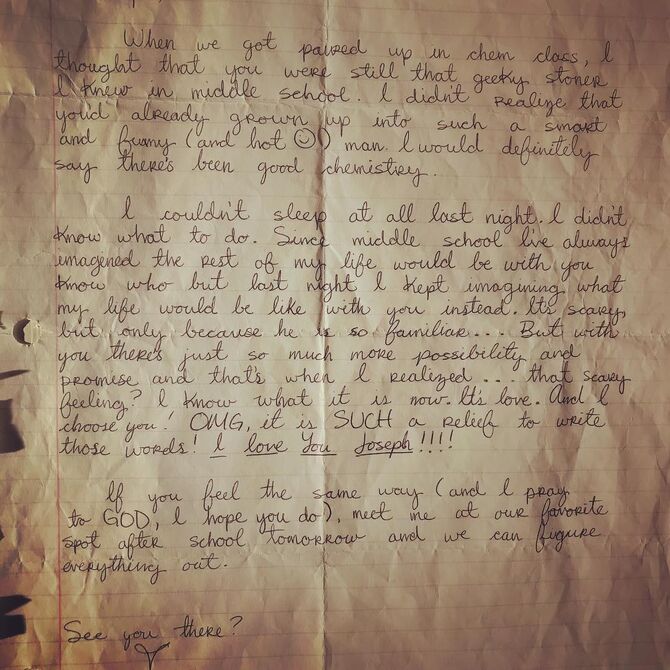 When we got paired up in chem class, I
thought that you were still that geeky stoner
I knew in middle school. I didn't realize that
you'd already grown up into such a smart
and funny (and hot ☺) man. I would definitely
say there's been good chemistry.
I couldn't sleep at all last night. I didn't
know what to do. Since middle school I've always
imagened the rest of my life would be with you
know who but last night I kept imagining what
my life would be like with you instead. It's scary,
but only because he is so familiar... But with
you there's just so much more possibility and
promise and that's when I realized... that scary
feeling? I know what it is now. It's love. And I
choose you! OMG, it is SUCH a relief to write
those words! I love You Joseph!!!!
If you feel the same way (and I pray
to GOD, I hope you do), meet me at our favorite
spot after school tomorrow and we can fugure
everything out.
See you there?